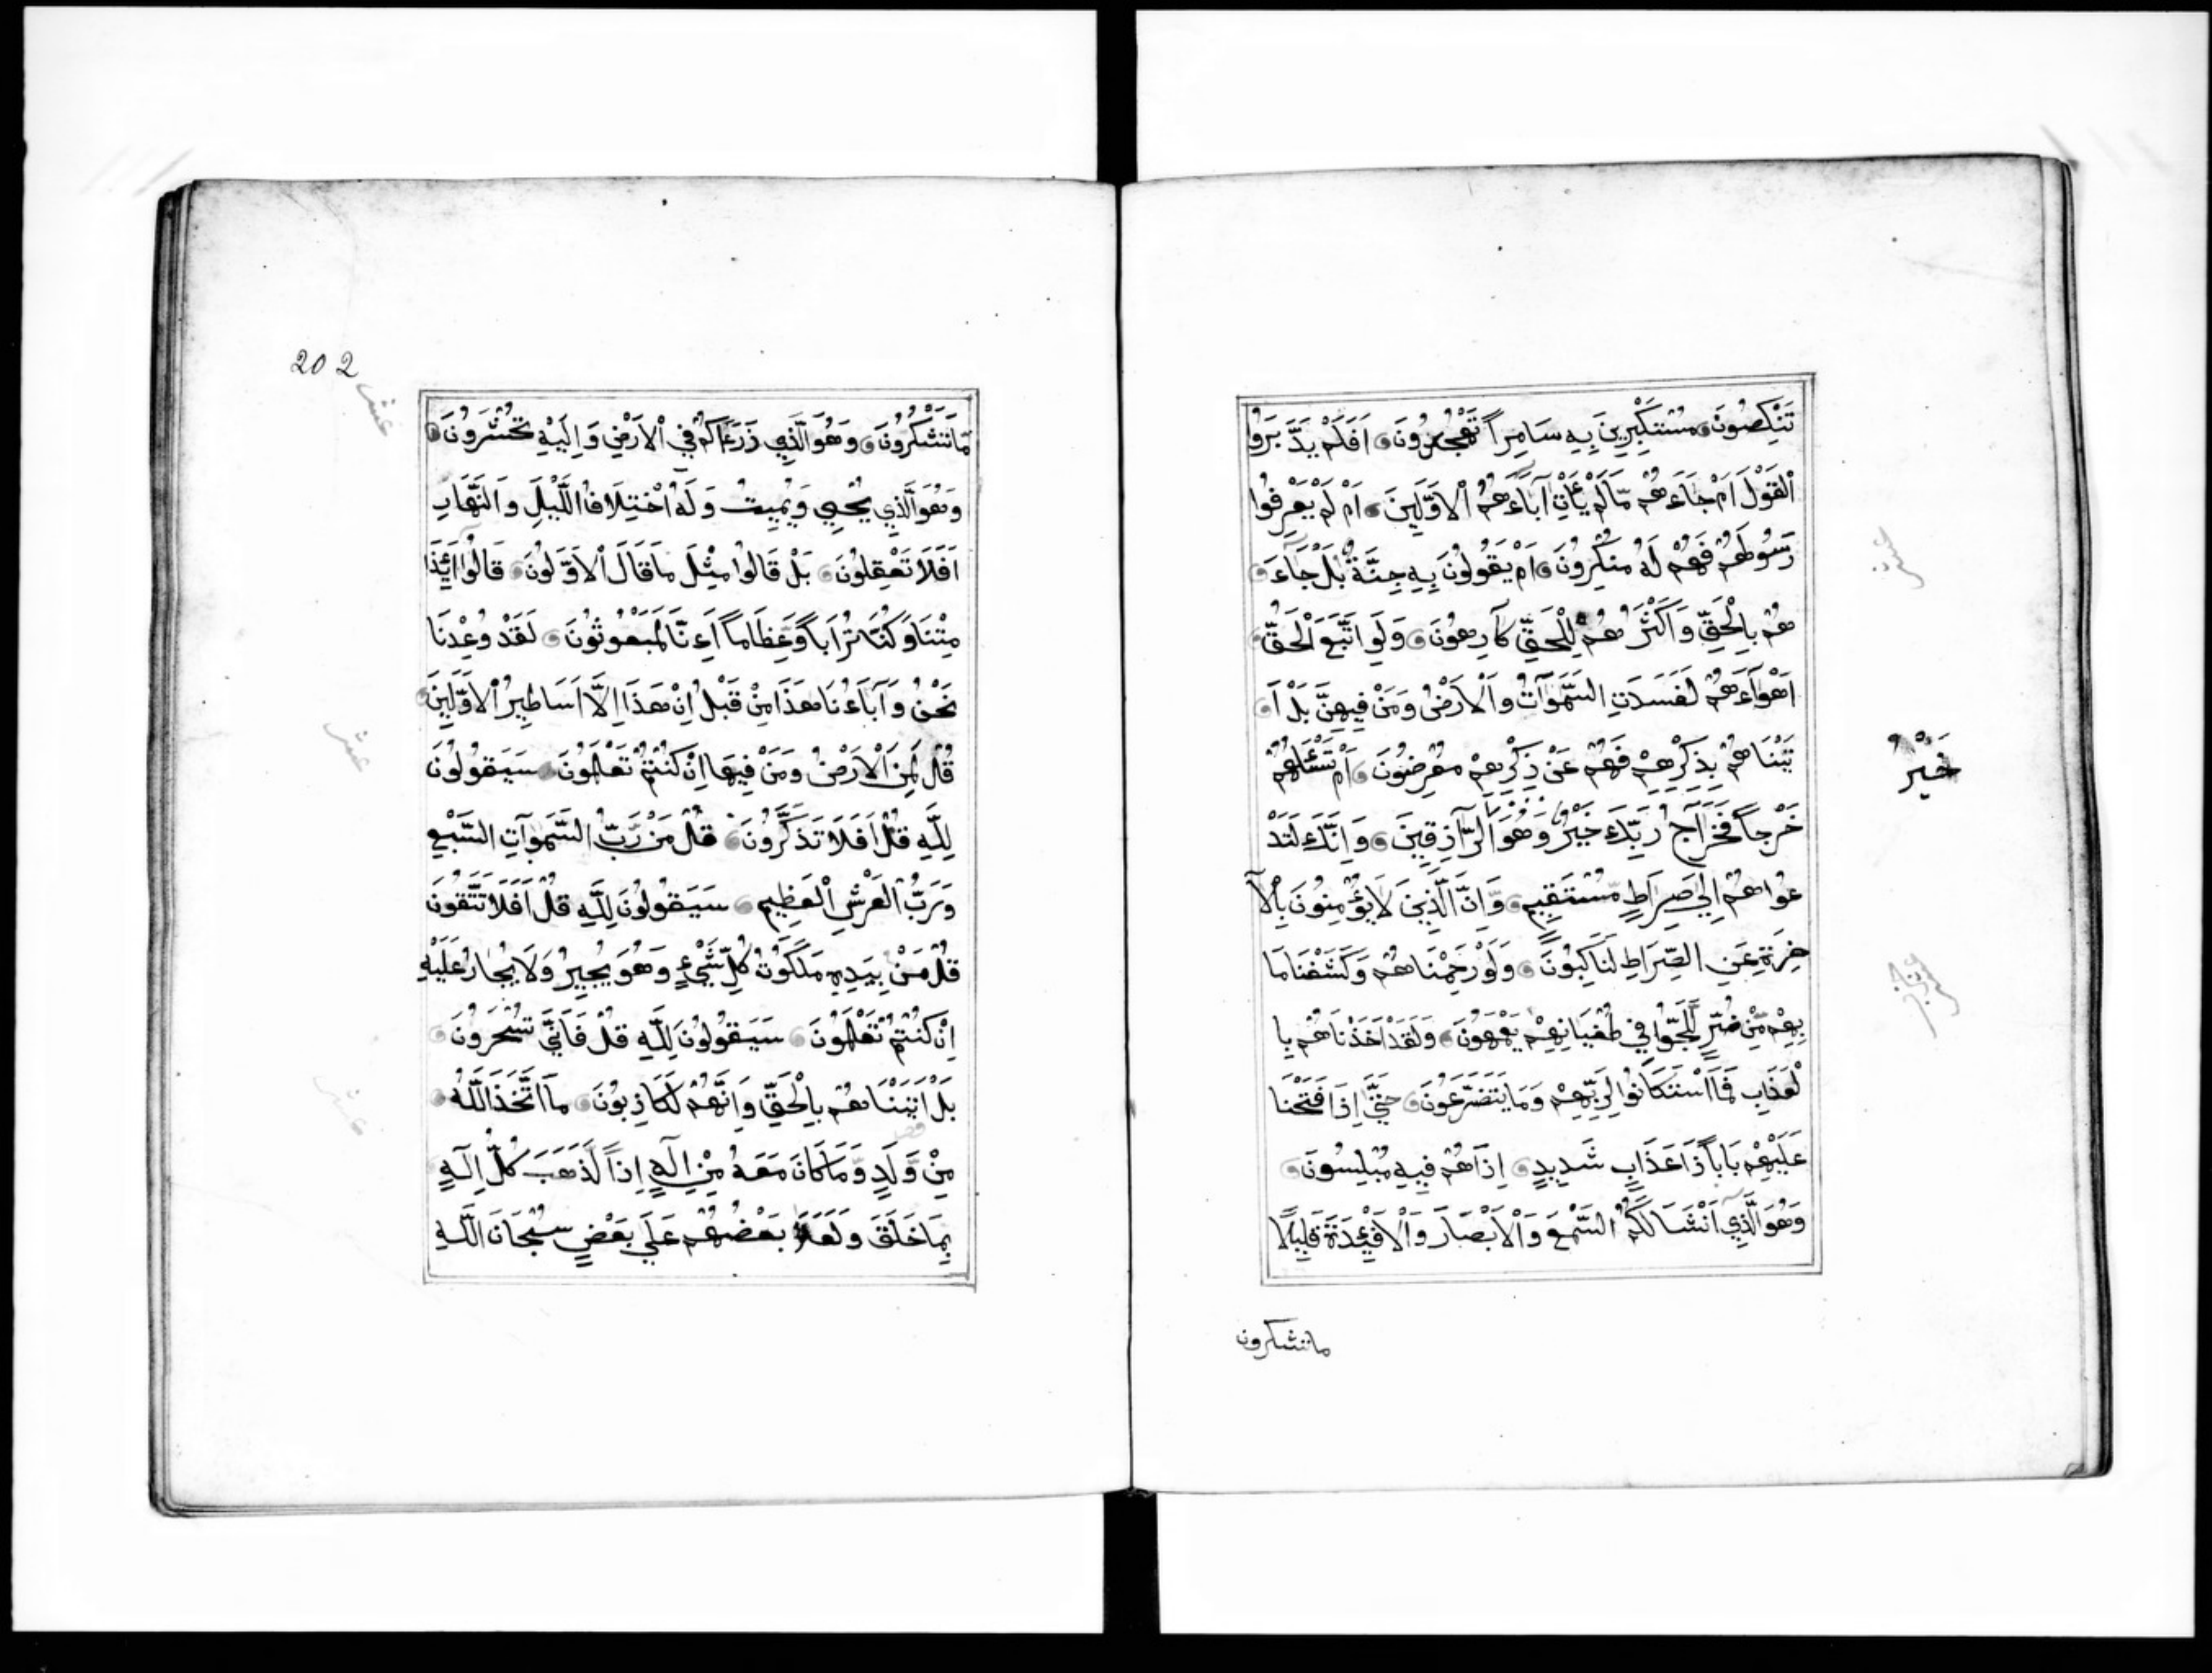 تَنْكِصُونَ مُسْتَكْبِرِينَ بِهِ سَامِراً تَهْجُرُونَ اَفَلَمْ يَدَّبَرَوُا
اْلقَوْلَ اَمْ جَاءَهُمْ مَّالَمْ يَأْتِ آبَاءَهُمُ اْلاَوَّلِينَ اَمْ لَمْ يَعْرِفُوا
رَسُولَهُمْ فَهُمْ لَهُ مُنْكِرُونَ اَمْ يَقُولُونَ بِهِ جِنَّةٌ بَلْ جَاءَ
هُمْ بِالْحَقِّ وَاَكْثَرُهُمْ لِلْحَقِّ كَارِهُونَ وَلَوِ اتَّبَعَ الْحَقُّ
اَهْوَاءَهُمْ لَفَسَدَتِ السَّمَوَاتُ وَاْلاَرْضُ وَمَنْ فِيهِنَّ بَلْ اَ
تَيْنَاهُمْ بِذِكْرِهِمْ فَهُمْ عَنْ ذِكْرِهِمْ مُعْرِضُونَ اَمْ تَسْئَلُهُمْ
خَرْجاً فَخَرَاجُ رَبِّكَ خَيْرٌ وَهُوَ الرَّازِقِينَ وَاِنَّكَ لَتَدْ
خَيْرُ
عُواهُمْ اِلَى صِرَاطٍ مُسْتَقِيمٍ وَاِنَّ الَّذِينَ لاَيُؤْمِنُونَ بِاْلآ
خِرَةِ عَنِ الصِّرَاطِ لَنَاكِبُونَ وَلَوْ رَحِمْنَاهُمْ وَكَشَفْنَا مَا
بِهِمْ مِّنْ ضُرٍّ لَّلَجُّوا فِي طُغْيَانِهِمْ يَعْمَهُونَ وَلَقَدْ اَخَذْنَاهُمْ بِا
لْعَذَابِ فَمَا اسْتَكَانُوا لِرَبِّهِمْ وَمَا يَتَضَرَّعُونَ حَتَّى اِذَا فَتَحْنَا
عَلَيْهِمْ بَاباً ذَا عَذَابٍ شَدِيدٍ اِذَا هُمْ فِيهِ مُبْلِسُونَ
وَهُوَ الَّذِي اَنْشَا لَكُمُ السَّمْعَ وَاْلاَبْصَارَ وَاْلاَفْئِدَةَ قَلِيلاً
ماتشكرون
202
عشر
مَّا تَشْكُرُونَ وَهُوَ الَّذِي ذَرَءَاكُمْ فِي اْلاَرْضِ وَاِلَيْهِ تُحْشَرُونَ
وَهُوَ الَّذِي يُحْيِي وَيُمِيتُ وَلَهُ اخْتِلاَفُ اللَّيْلِ وَالنَّهَارِ
اَفَلاَ تَعْقِلُونَ بَلْ قَالُوا مِثْلَ مَا قَالَ اْلاَوَّلُونَ قَالُوا اَئِذَا
مِتْنَا وَكُنَّا تُرَاباً وَعِظَاماً اَءِنَّا لَمَبْعُوثُونَ لَقَدْ وُعِدْنَا
نَحْنُ وَآبَاءُنَا هَذَا مِنْ قَبْلُ اِنْ هَذَا اِلاَّ اَسَاطِيرُ اْلاَوَّلِينَ
عشر
قُلْ لِمَنِ اْلاَرْضُ وَمَنْ فِيهَا اِنْ كُنْتُمْ تَعْلَمُونَ سَيَقُولُونَ
لِلَّهِ قُلْ اَفَلاَ تَذَكَّرُونَ قُلْ مَنْ رَبُّ السَّمَوَاتِ السَّبْعِ
وَرَبُّ الْعَرْشِ الْعَظِيمِ سَيَقُولُونَ لِلَّهِ قُلْ اَفَلاَ تَتَّقُونَ
قُلْ مَنْ بِيَدِهِ مَلَكُوتُ كُلِّ شَيْءٍ وَهُوَ يُجِيرُ وَلاَ يُجَارُ عَلَيْهِ
اِنْ كُنْتُمْ تَعْلَمُونَ سَيَقُولُونَ لِلَّهِ قُلْ فَاَنَّى تُسْحَرُونَ
عشر
بَلْ اَتَيْنَاهُمْ بِالْحَقِّ وَاِنَّهُمْ لَكَاذِبُونَ مَا اتَّخَذَ اللَّهُ
مِنْ وَلَدٍ وَمَا كَانَ مَعَهُ مِنْ اِلَهٍ اِذاً لَّذَهَبَ كُلُّ اِلَهٍ
بِمَا خَلَقَ وَلَعَلاَ بَعْضُهُمْ عَلَى بَعْضٍ سُبْحَانَ اللَّهِ